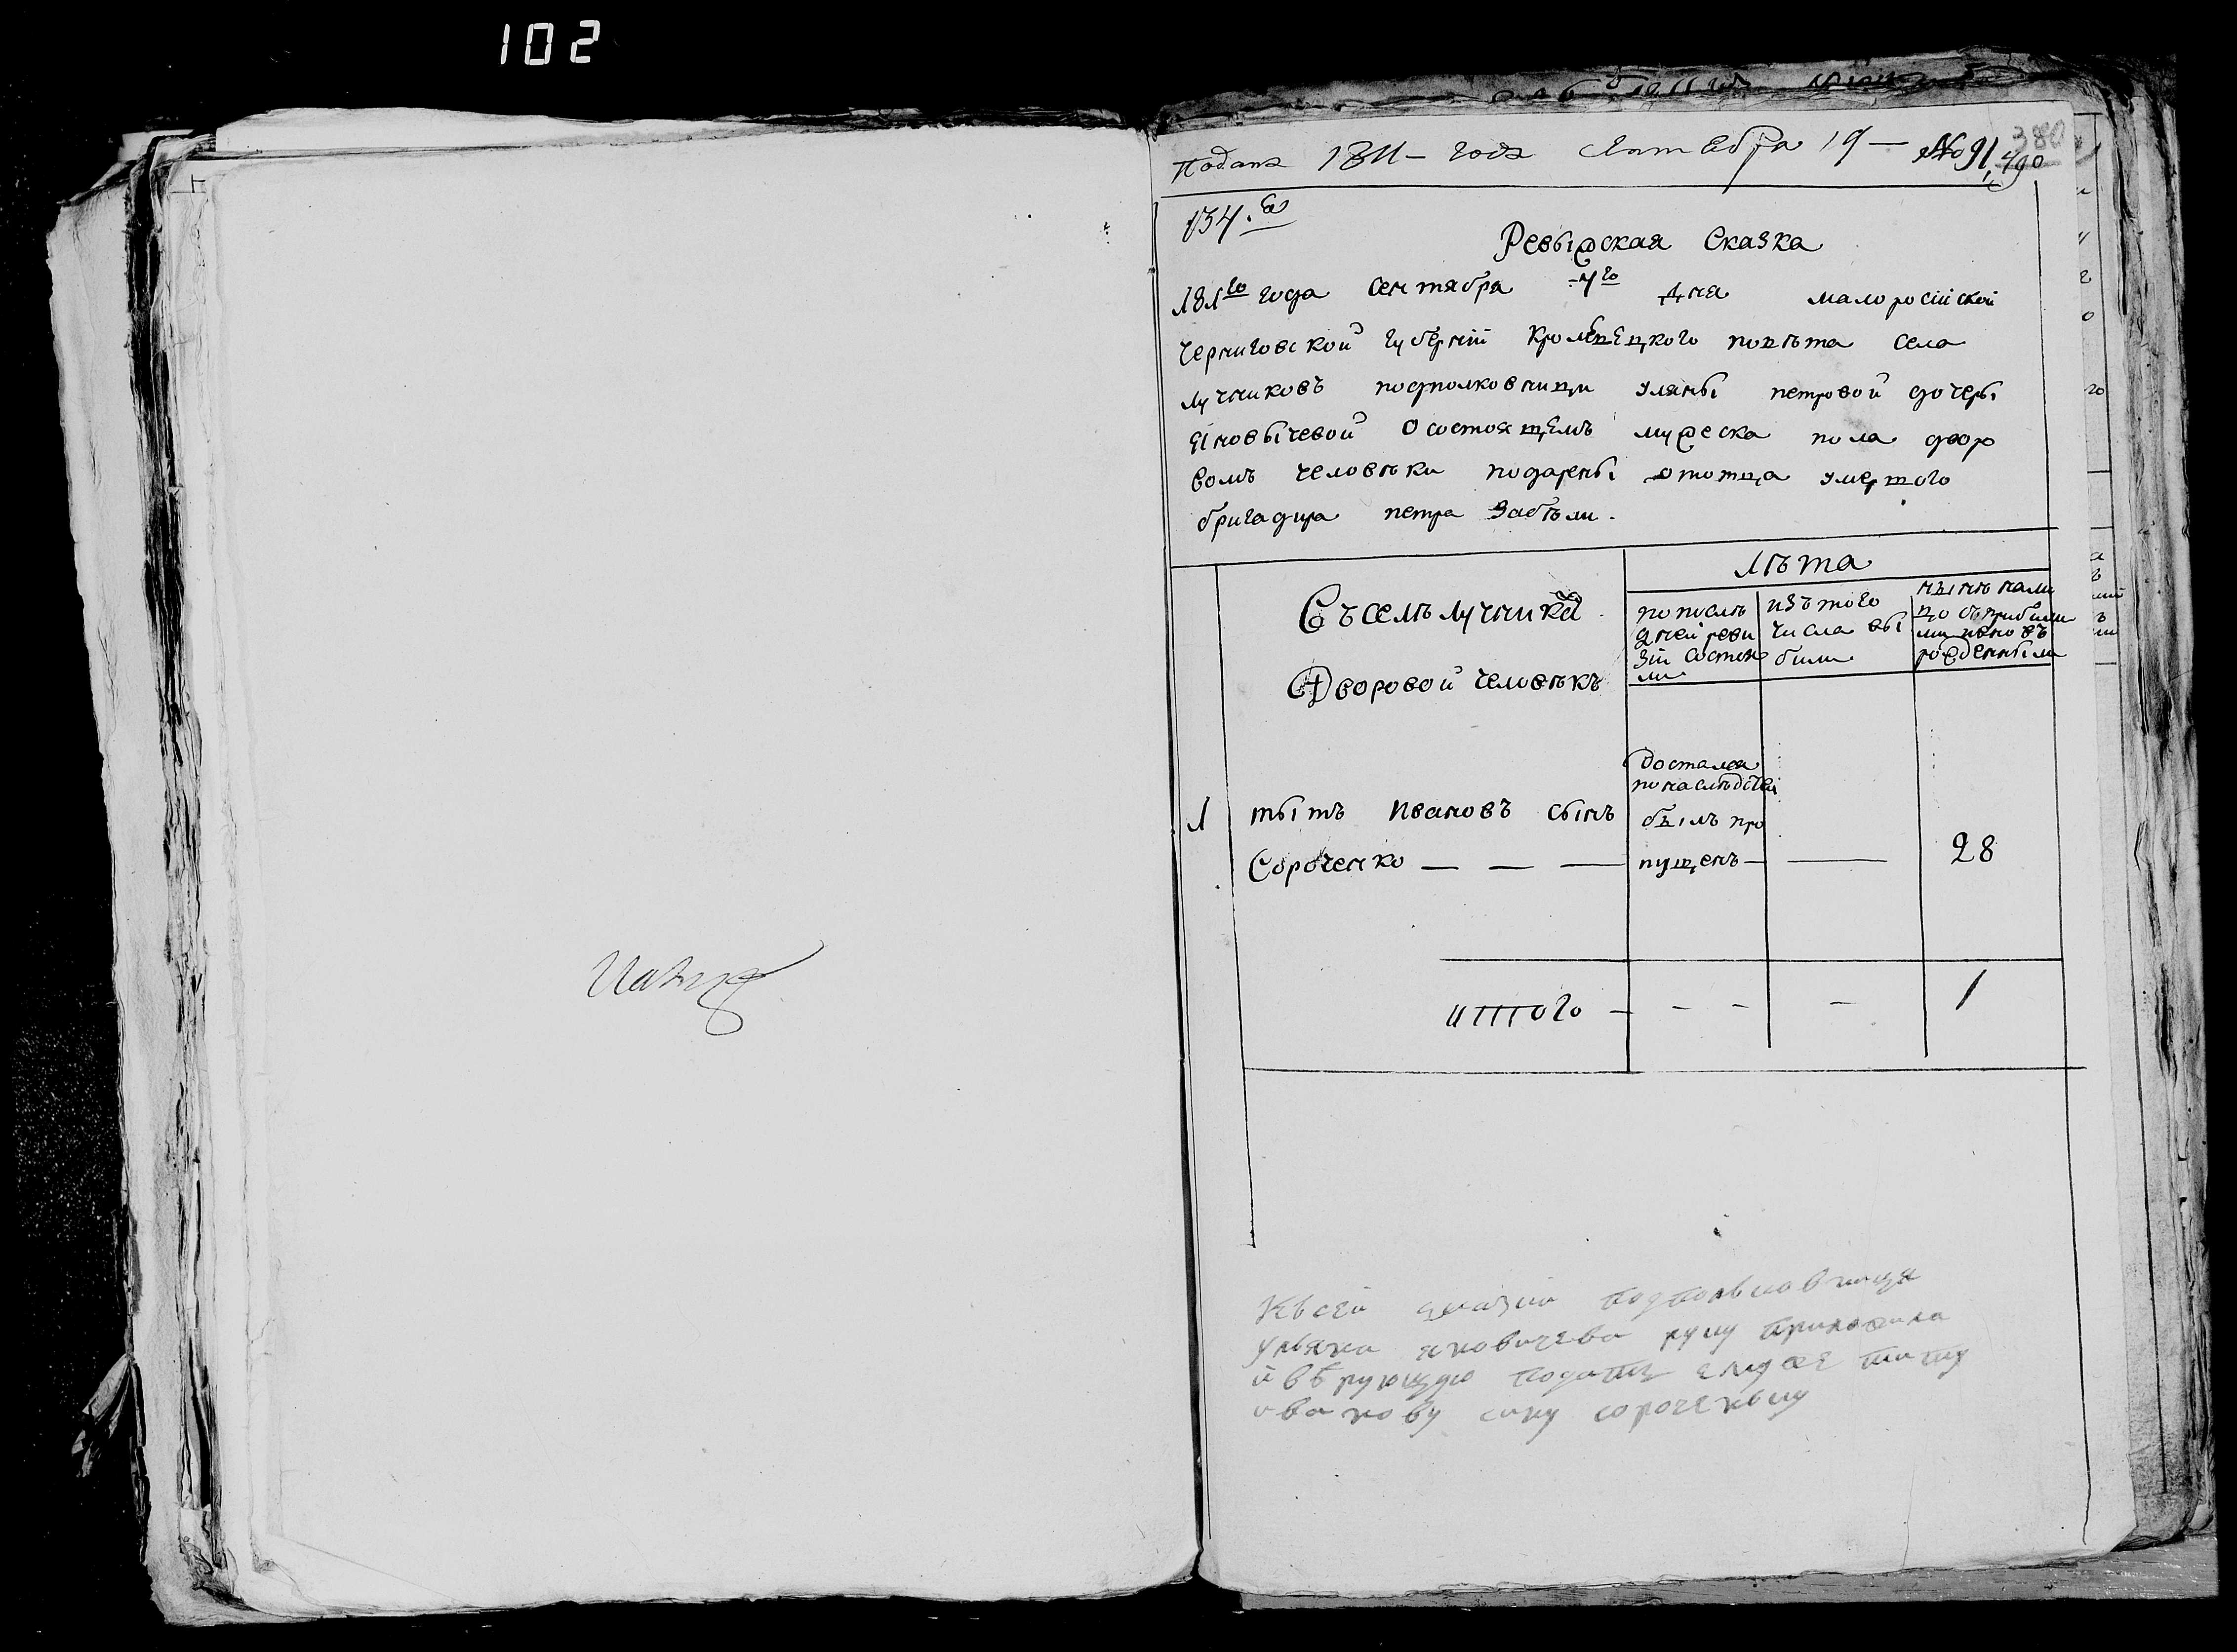 102
Подана 1811 – года Сентебра 19 – № 91
380
490
134.
Ревыжская Сказка
181го года сентября 7го дня малоросійской
черниговской губерніи Кролевецкого повѣта села
лучниковъ подполковници уляны петровой дочеры
яновычевой О состоящемъ мужеска пола двор
вомъ человѣки подарены ототца умершого
бригадира петра Забѣли.
Лѣта
Въ селѣ лучника
Дворовой человѣкъ
по послѣ
дней реви
зіи состоя
ли
изъ того
числа вы
были
нынѣ нали
цо съ прибылы
ми и новъ
рожденныма
1
тытъ Ивановъ сынъ
Сороченко — — —
Достался
понаслѣдствеі
былъ про
пущенъ —
—
28
иттого – – – – 1
Къ сей сказки подполковница
Ульяна яновичева руку приложила
и вѣрующую подать ему же титу
иванову сину сороченку